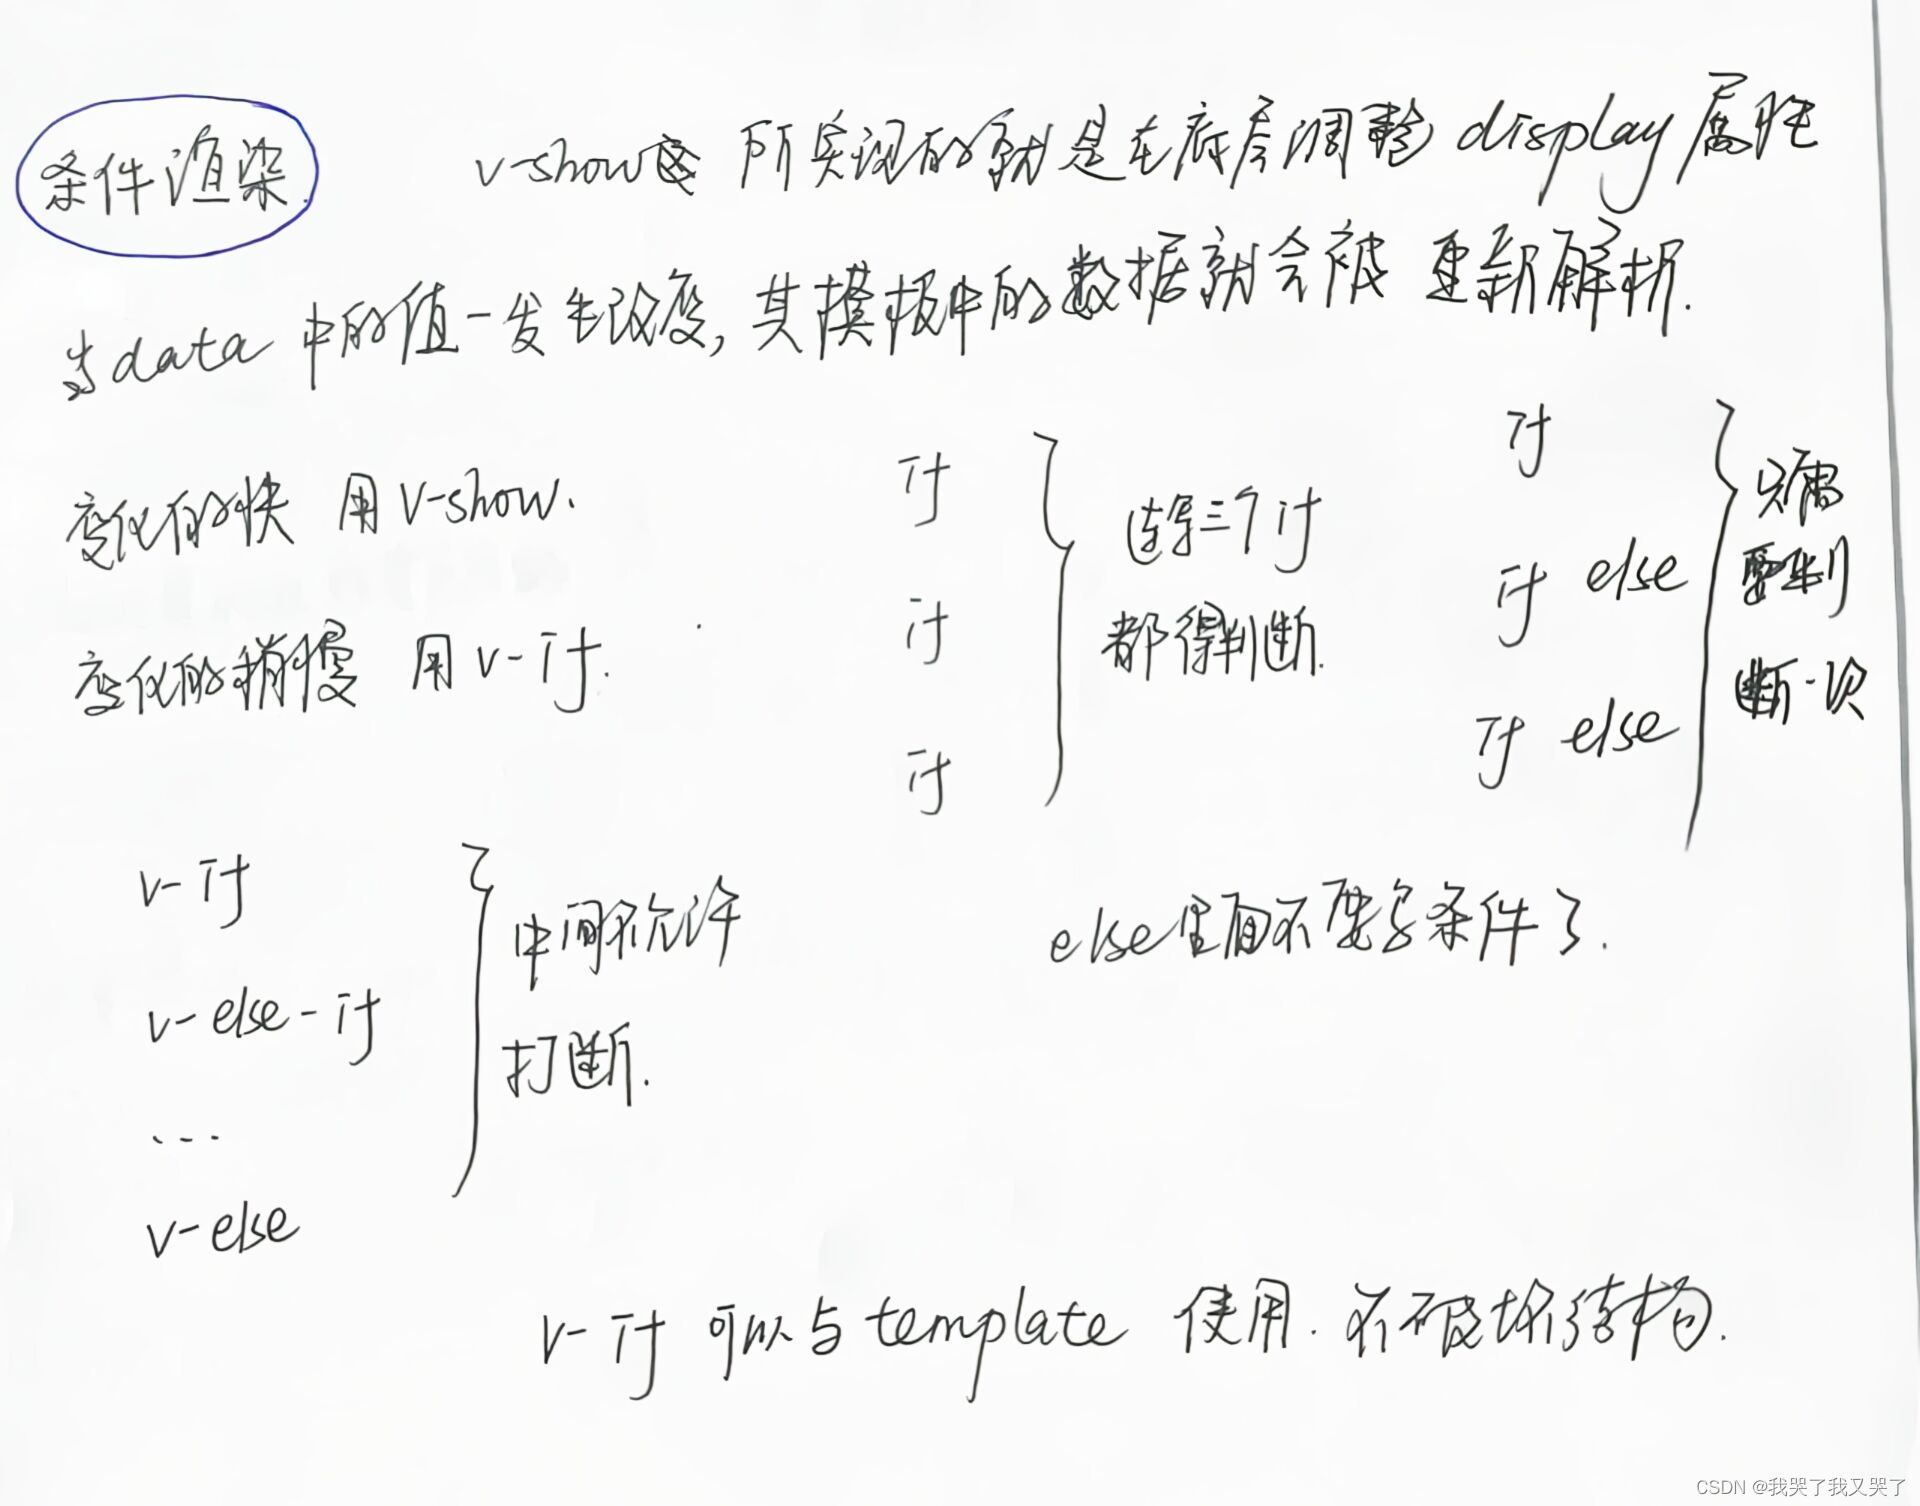 条件渲染
v-show 所实现的就是在底层调整 display 属性
当data 中的值一发生改变, 其模板中的数据就会被 重新解析.
变化的快 用 v-show.
变化的稍慢 用 v-if.
if
if
if
连写三个 if
都得判断.
if
if else
if else
只需
要判
断一次
v-if
v-else-if
...
v-else
中间不允许
打断.
else里面不要写条件了.
v-if 可以与 template 使用. 不破坏结构.
CSDN @我哭了我又哭了